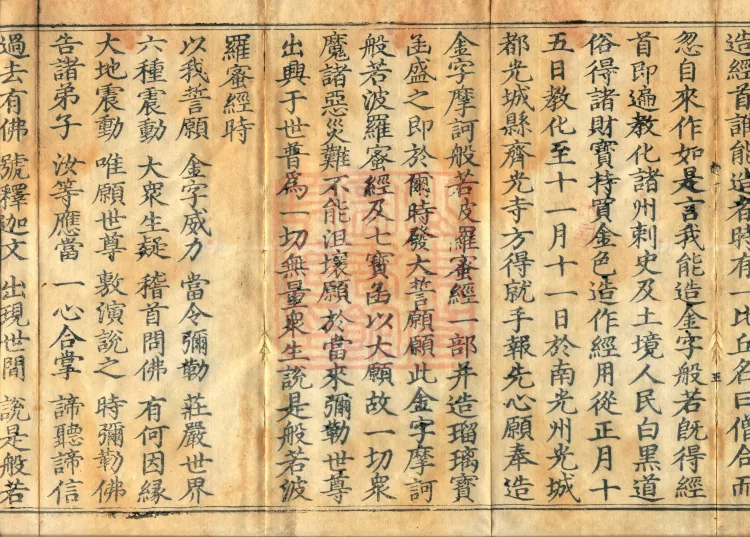 造經首誰能造者時有一比丘名曰僧合而
忽自來作如是言我能造金字般若既得經
首即遍教化諸州刺史及土境人民白黑道
俗得諸財寶持買金色造作經用從正月十
五日教化至十一月十一日於南光州光城
都光城縣齊光寺方得就手報先心願奉造
金字摩訶般若波羅蜜經一部并造瑠璃寶
函盛之即於爾時發大誓願願此金字摩訶
般若波羅蜜經及七寶函以大願故一切眾
魔諸惡災難不能沮壞願於當來彌勒世尊
出興于世普為一切無量眾生說是般若波
羅蜜經時
以我誓願 金字威力 當令彌勒 莊嚴世界
六種震動 大眾生疑 稽首問佛 有何因緣
大地震動 唯願世尊 敷演說之 時彌勒佛
告諸弟子 汝等應當 一心合掌 諦聽諦信
過去有佛 號釋迦文 出現世間 說是般若
五